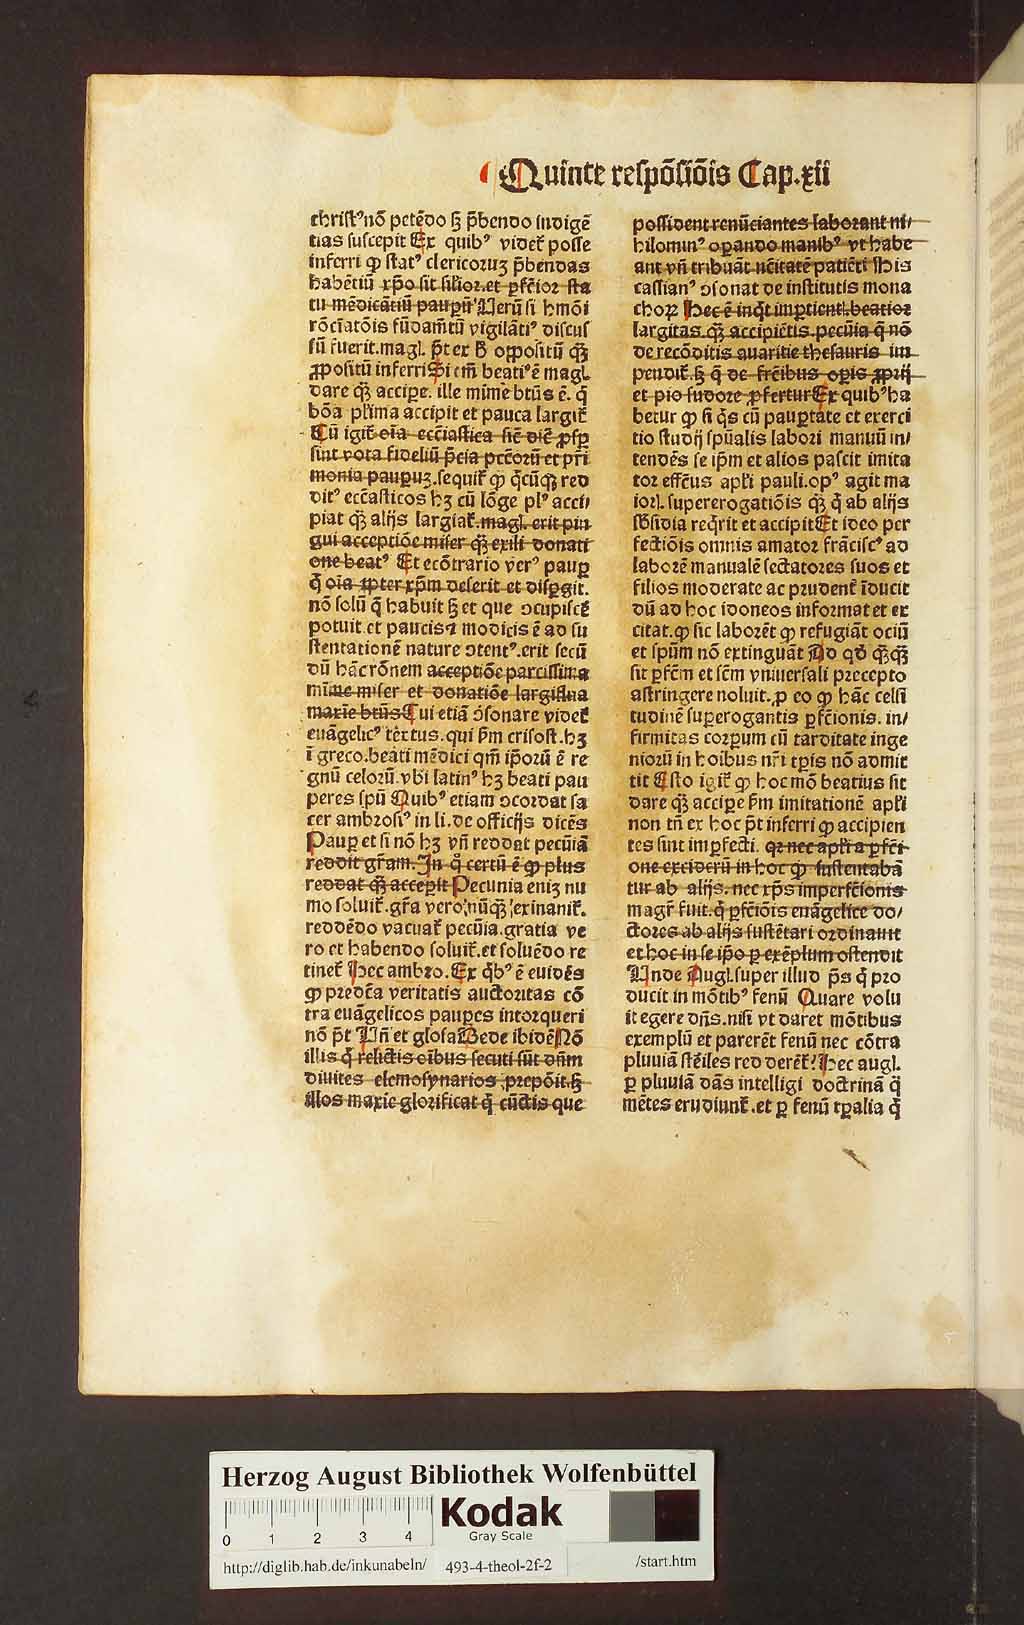 Quinte respōsiōis Cap.xii
christꝰ nō petēdo sꝫ p̄bendo indigē
tias suscepit Ex quibꝰ videt᷑ posse
inferri ꝙ statꝰ clericoruꝫ p̄bendas
habētiū xp̄o sit silior.et ꝑfc̄ior sta
tu mēdicātiū pauꝑū Verū si hmōi
rōciatōis fūdam̄tū vigilātiꝰ discus
sū fuerit.magl. p̄t ex oppositū qꝫ
ꝓpositū inferri Si em̄ beatiꝰ ē magl
dare qꝫ accipe. ille mime btūs ē. q̄
bōa plīma accipit et pauca largit᷑
Cū igit᷑ oīa ecc̄iastica sic̄ dic̄ ꝓsꝑ
sint vota fideliū p̄cia pctōrū et pr̄i
monia pauperuꝫ.sequit᷑ ꝙ q̄cūqꝫ red
ditꝰ ecc̄asticos hꝫ cū lōge plꝰ acci/
piat qꝫ alijs largiat᷑.magl. erit pin
gui acceptiōe miser qꝫ exili donati
one beatꝰ Et ecōtrario verꝰ pauꝑ
q̄ oīa ꝓpter xp̄m deserit et dispgit.
nō solū q̄ habuit sꝫ et que ↄcupisce᷑
potuit.et paucis ⁊ modicis ē ad su
stentationē nature ↄtentꝰ.erit secū
dū hāc rōnem acceptiōe parcissima
mīme miser et donatiōe largissima
maxīe btūs Cui etiā ↄsonare videt᷑
euāgelicꝰ textus.qui ẜm crisost.hꝫ
ī greco.beati mēdici qm̄ ip̄orū ē re
gnū celorū.vbi latinꝰ hꝫ beati pau
peres spū Quibꝰ etiam ↄcordat sa
cer ambrosiꝰ in li.de officijs dicēs
Pauꝑ et si nō hꝫ vn̄ reddat pecūiā
reddit gr̄am. In q̄ certū ē ꝙ plus
reddat qꝫ accepit Pecunia eniꝫ nu
mo soluit᷑.gr̄a vero nūqꝫ exinanit᷑.
reddēdo vacuat᷑ pecūia.gratia ve
ro et habendo soluit᷑.et soluēdo re
tinet᷑ Hec ambro. Ex q̄bꝰ ē euidēs
ꝙ predc̄a veritatis auctoritas cō
tra euāgelicos pauꝑes intorqueri
nō p̄t Vn̄ et glosa Bede ibidē Nō
illis q̄ relictis oībus secuti sūt dn̄m
diuites elemosynarios prepōit.sꝫ
illos maxīe glorificat q̄ cūctis que
possident renūciantes laborant ni/
hilominꝰ opando manibꝰ vt habe
ant vn̄ tribuāt nc̄itatē patiēti His
cassianꝰ ↄsonat de institutis mona
choꝝ Hec ē inqͥt imꝑtient᷑.beatior
largitas.qꝫ accipiētis.pecūia q̄ nō
de recōditis auaritie thesauris im
pendit᷑.sꝫ q̄ de frc̄ibus opis ꝓprij
et pio sudore ꝓfertur Ex quibꝰ ha
betur ꝙ si q̄s cū pauꝑtate et exerci
tio studij spūalis labori manuū in/
tendēs se ip̄m et alios pascit imita
tor effc̄us apl̄i pauli.opꝰ agit ma
ioris. supererogatiōis qꝫ q̄ ab alijs
sb̄sidia reqͥrit et accipit Et ideo per
fectiōis omnis amator frāciscꝰ ad
laborē manualē sectatores suos et
filios moderate ac prudent᷑ īducit
dū ad hoc idoneos informat et ex
citat.ꝙ sic laborēt ꝙ refugiāt ociū
et spūm nō extinguāt Ad qd̄ qꝫqꝫ
sit ꝑfc̄m et sc̄m vniuersali precepto
astringere noluit.ꝑ eo ꝙ hāc celsi
tudinē superogantis ꝑfc̄ionis. in/
firmitas corꝑum cū tarditate inge
niorū in hoibus nr̄i tꝑis nō admit
tit Esto igit᷑ ꝙ hoc mō beatius sit
dare qꝫ accipe ẜm imitationē apl̄i
non tn̄ ex hoc p̄t inferri ꝙ accipien
tes sint imꝑfecti. qꝛ nec apl̄i a ꝑfc̄i
one exciderūt in hoc ꝙ sustentabā
tur ab alijs. nec xp̄s imperfc̄ionis
magr̄ fuit.q̄ ꝑfc̄iōis euāgelice do/
ctores ab alijs sustētari ordinauit
et hoc in se ip̄o ꝑ exēplum ostendit
Vnde Augl.super illud p̄s q̄ pro
ducit in mōtibꝰ fenū Quare volu
it egere dn̄s.nisi vt daret mōtibus
exemplū et parerēt fenū nec cōtra
pluuiā stēiles redderēt᷑? Hec augl.
ꝑ pluuiā dās intelligi doctrinā q̄
mētes erudiunt᷑.et ꝑ fenū tꝑalia q̄
Herzog August Bibliothek Wolfenbüttel
0 1 2 3 4
Kodak
Gray Scale
http://diglib.hab.de/inkunabeln/ 493-4-theol-2f-2 /start.htm